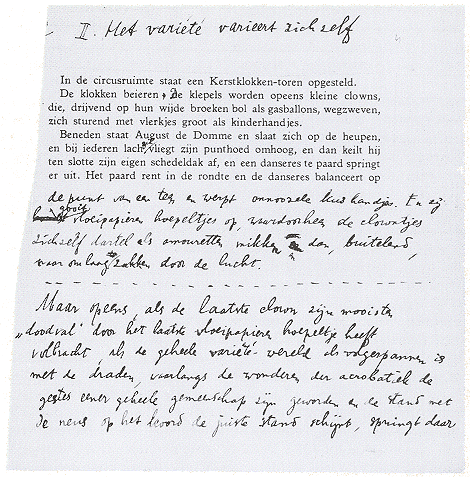 II. Het variété varieert zichzelf
In de circusruimte staat een Kerstklokken-toren opgesteld.
De klokken beieren. De klepels worden opeens kleine clowns,
die, drijvend op hun wijde broeken bol als gasballons, wegzweven,
zich sturend met vlerkjes groot als kinderhandjes.
Beneden staat August de Domme en slaat zich op de heupen,
en bij iederen lach vliegt zijn punthoed omhoog, en dan keilt hij
ten slotte zijn eigen schedeldak af, en een danseres te paard springt
er uit. Het paard rent in de rondte en de danseres balanceert op
de punt van een teen en werpt onnoozele kushandjes. En zij
gooit vloeipapieren hoepeltjes op waardoorheen de clowntjes
zichzelf dartel als amouretten mikken en dan, buitelend,
waar omlaag zakken door de lucht.
Maar opeens, als de laatste clown zijn mooisten
„doodval" door het laatste vloeipapieren hoepeltje heeft
volbracht, als de geheele variété-wereld als volgespannen is
met de draden, waarlangs de wonderen der acrobatiek de
gestes eener geheele gemeenschap zijn geworden en de stand met
de neus op het koord de juiste stand schijnt, springt daar